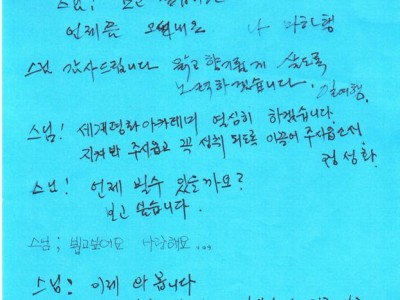 스님!
언제쯤 오셨네요
스님 감사드립니다 맑고 향기롭게 살도록
노력하겠습니다.
스님! 세계평화아카데미 열심히 하겠습니다.
지켜봐 주시옵고 꼭 성취 되도록 이끌어 주시옵소서
정성화.
스님! 언제 뵐수 있을까요?
보고 싶습니다.
스님; 뵙고싶어요 사랑해요...
스님! 이제 와 봅니다